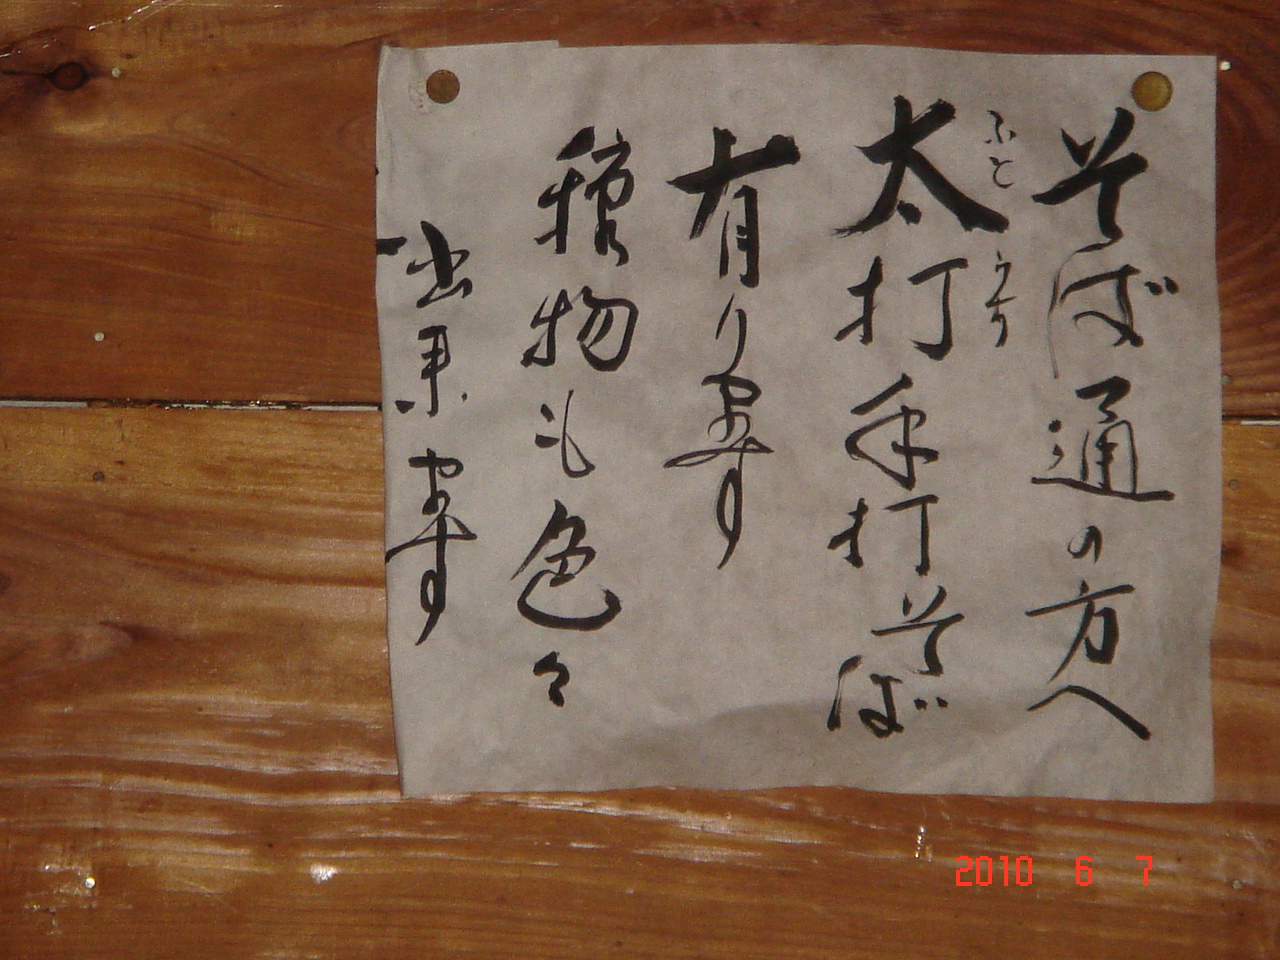 そば通の方へ
ふと うち
太打手打そば
有ります
種物も色々
出来ます
2010 6 7